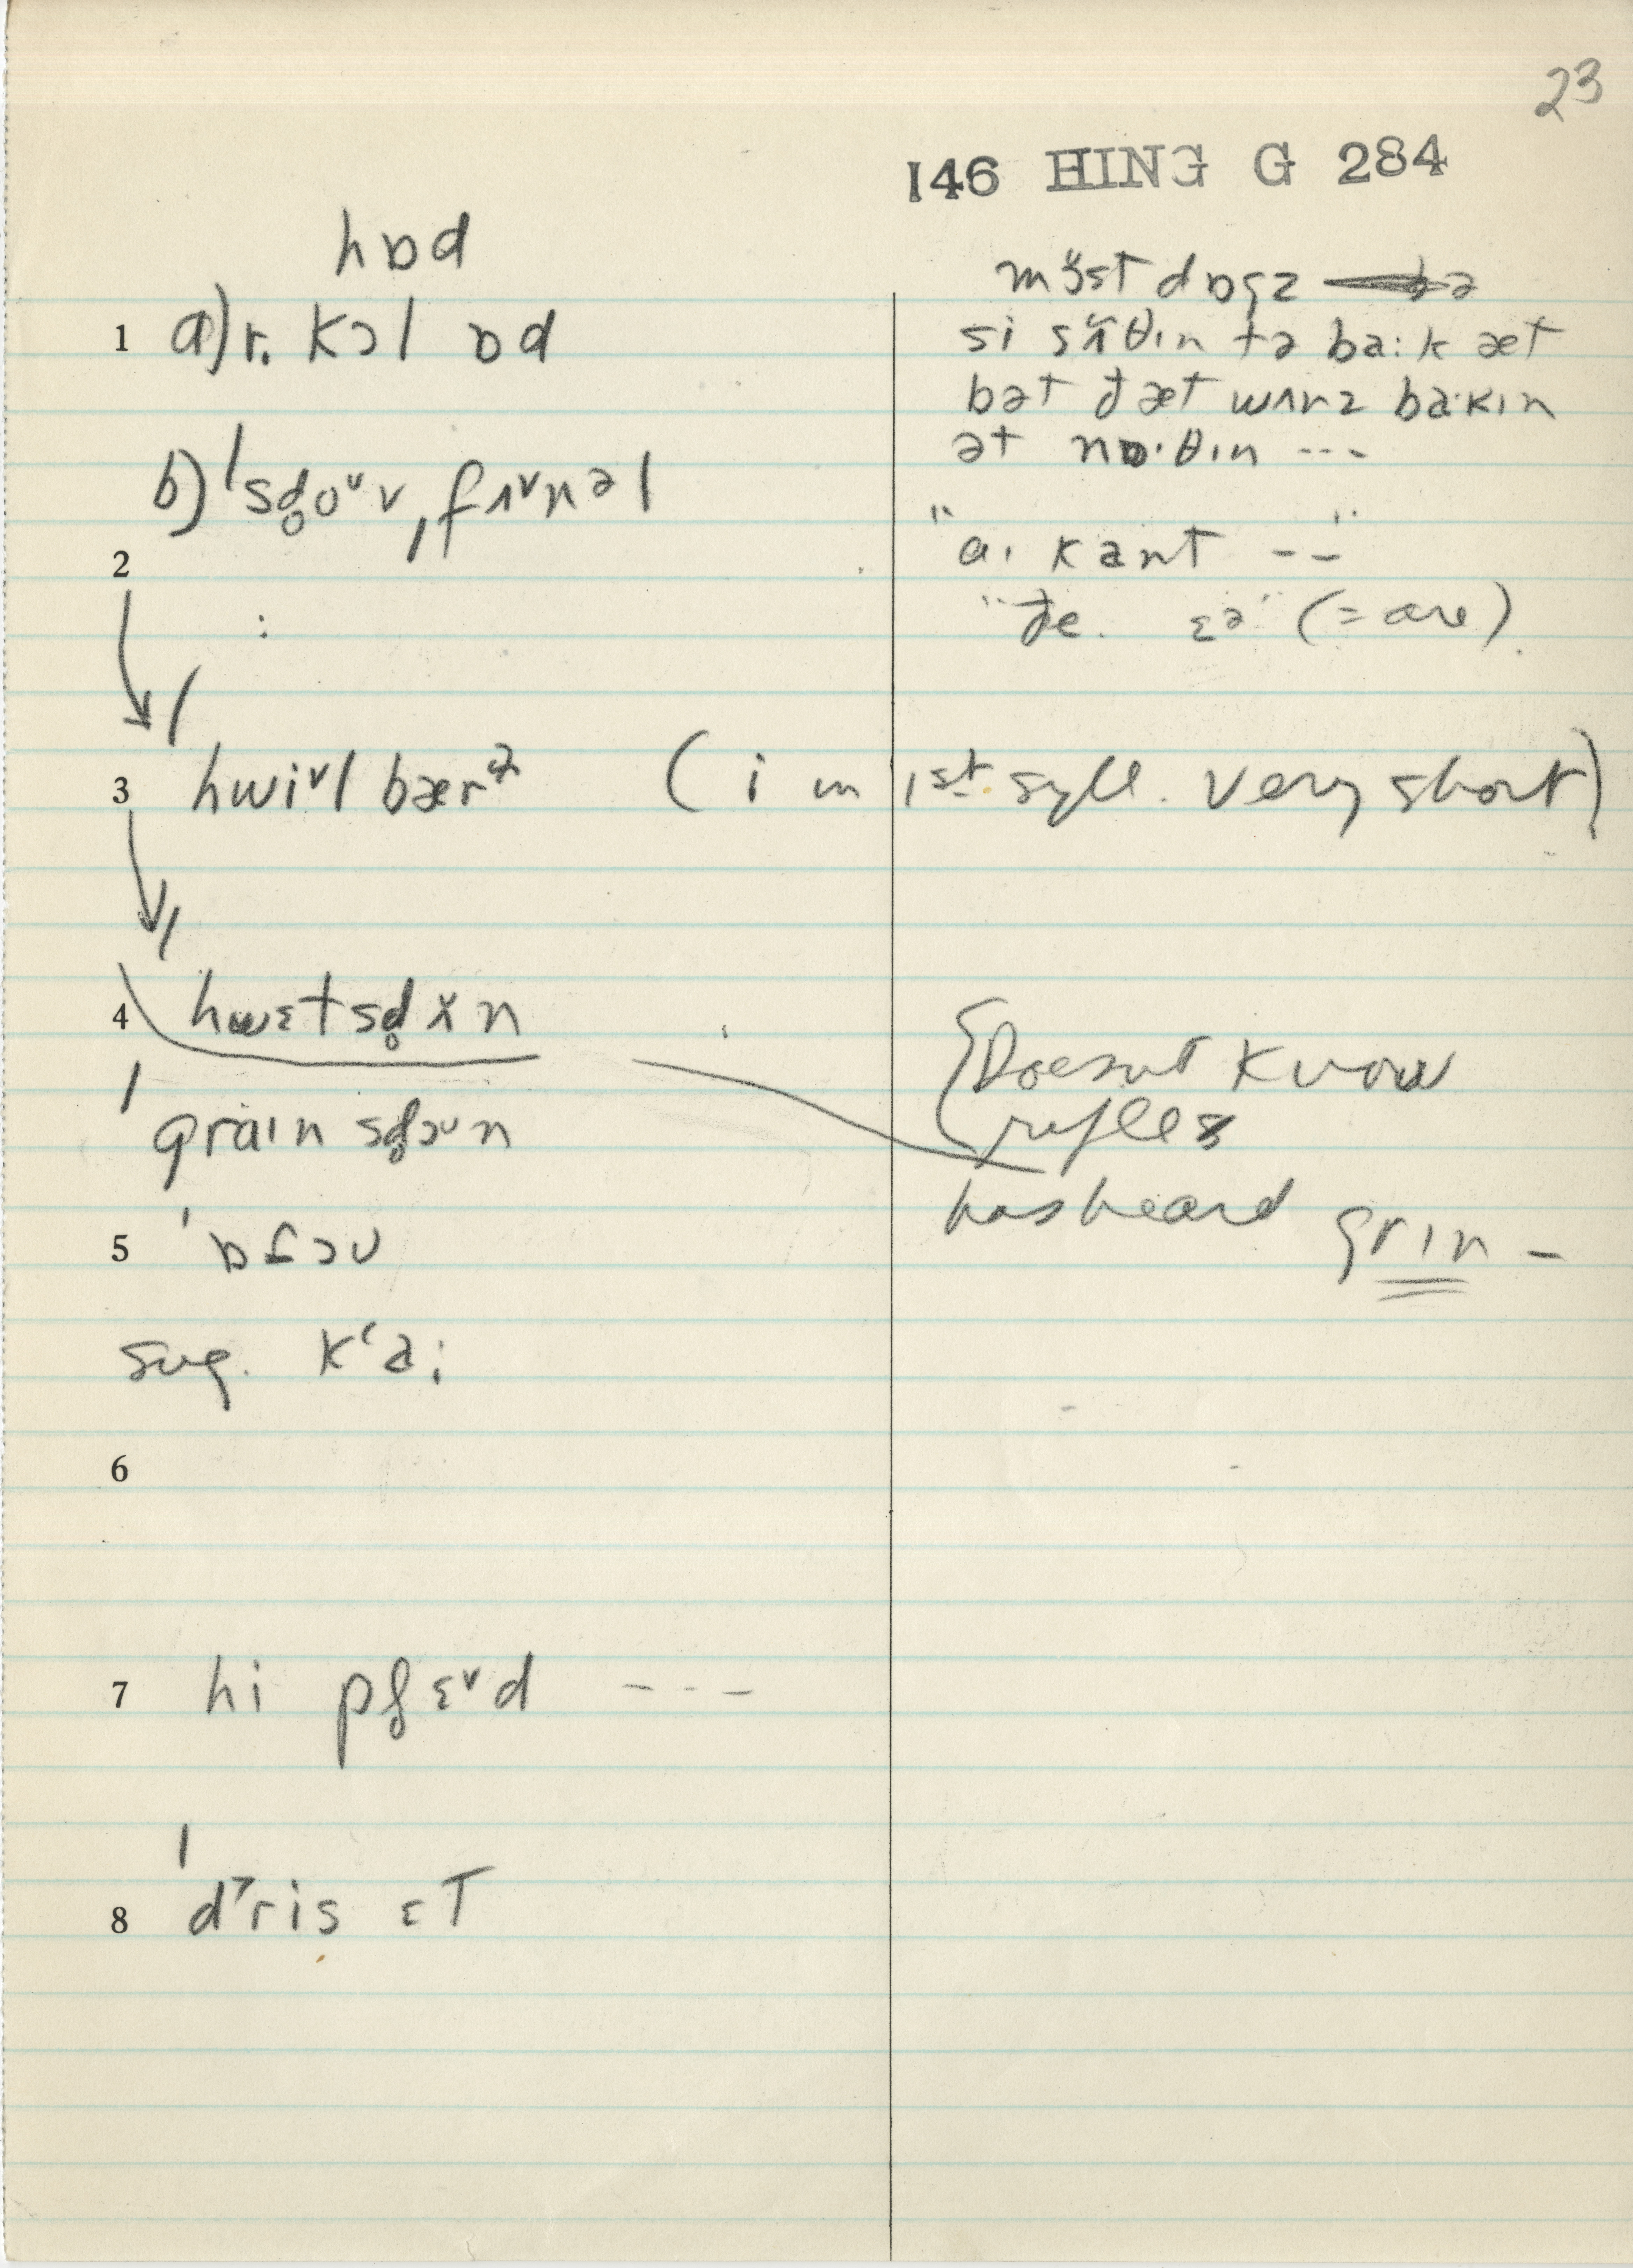 23
146 HING G 284
hɒd
1 a) r. kɔl ɒd
b) ˈsd̥oᵛv ˌfʌᵛnəl
2
:
3 hwiᵛl bærᵊ (i in 1st syll. very short)
4 hwɛt sd̥ n
ˈgraɪn sd̥oᵛn
5 ˈɒfɔʊ
sug. kʻa:
6
7 hi pl̥ɛᵛd ---
8 ˈdris ɛT
mɜ̈st dɒgz ə
si sʌ̈θɪn tə ba:k æt
bət ðæt wʌnz ba·kɪn
ət nɒ·θɪn ---
"aɪ kant --"
"ðe. ɛə" (= are)
Doesnt know
rifles
has heard grɪn -